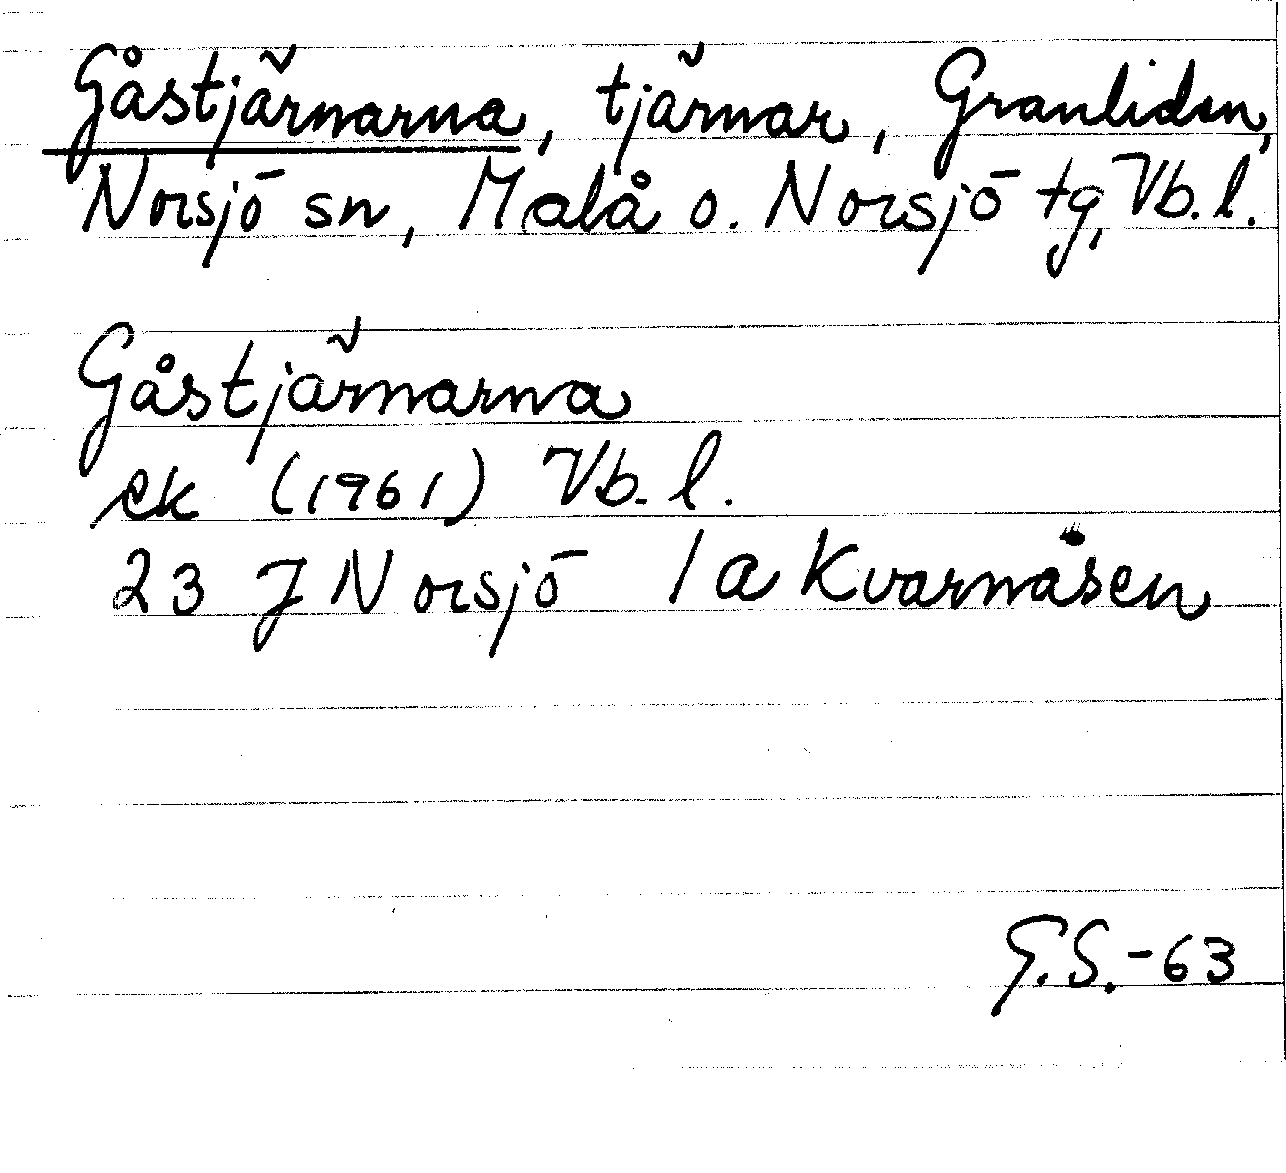 Gåstjärnarna, tjärnar, Granliden,
Norsjö sn, Malå o. Norsjö tg, Vb. l.
Gåstjärnarna
ek (1961) Vb. l.
23 J Norsjö 1a Kvarnåsen
G.S.-63